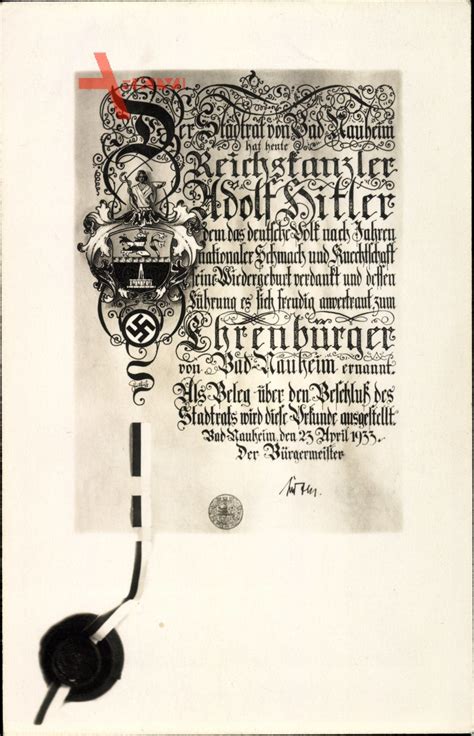 Der Stadtrat von Bad Nauheim
hat heute
Reichskanzler
Adolf Hitler
dem das deutsche Volk nach Jahren
nationaler Schmach und Knechtschaft
seine Wiedergeburt verdankt und dessen
Führung es sich freudig anvertraut zum
Ehrenbürger
von Bad Nauheim ernannt.
Als Beleg über den Beschluß des
Stadtrats wird diese Urkunde ausgestellt.
Bad Nauheim, den 23 April 1933.
Der Bürgermeister